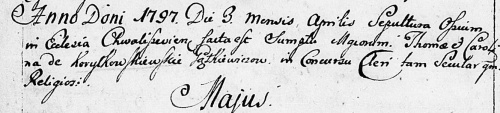 Anno Doni 1797. Die 3. Mensis Aprilis Sepultura Ossium
in Eclesia Chwaliszewien. facta est Sumptu Mgcorum. Thomæ & Caroli
na de Korytkowskie in Concursu Cleri tam Secular qm.
Religiosi:
Majus.